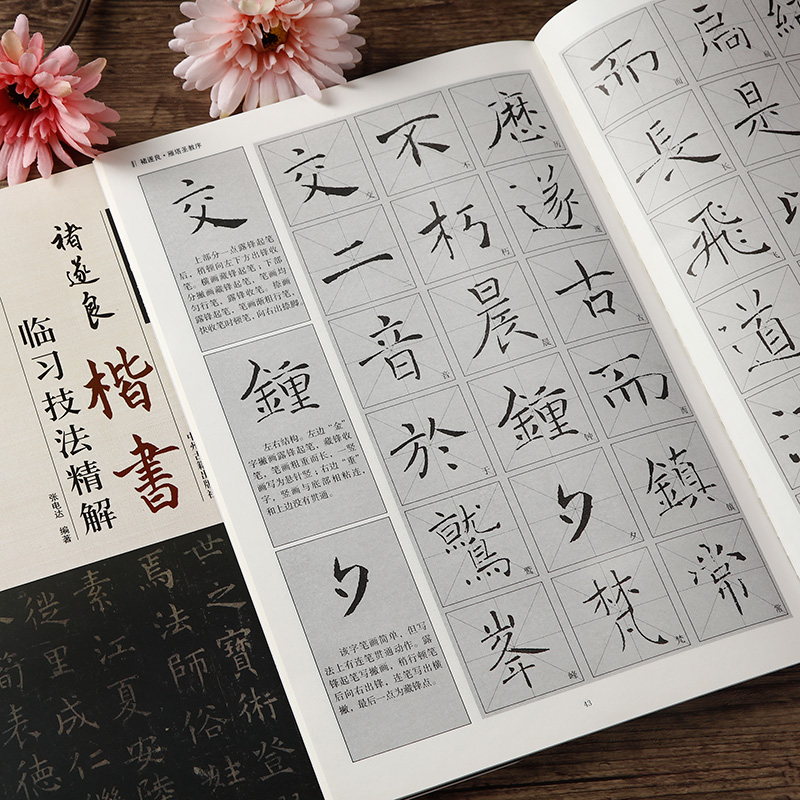 褚遂良
楷書
临习技法精解
张电达 编著
世之寶術登
法師俗
素江夏安陸
里成仁
表德
褚遂良·雁塔圣教序
交
上部分一点露锋起笔
后，稍顿向左下方出锋收
笔。横画藏锋起笔；下部
分撇画藏锋起笔，笔画均
匀行笔，露锋收笔。捺画
露锋起笔，笔画渐粗行笔，
快收笔时顿笔，向右出捺脚。
鍾
左右结构。左边“金”
字撇画露锋起笔，藏锋收
笔，笔画粗重而长，一竖
画写为悬针竖；右边“重”
字，竖画与底部相粘连，
和上边没有贯通。
夕
该字笔画简单，但写
法上有连笔贯通动作。露
锋起笔写撇画，稍行顿笔
后向右出锋，连笔写出横
撇，最后一点为藏锋点。
歷遂古而鎮常
历遂古而镇常
不朽晨鍾夕梵
不朽晨钟夕梵
交二音於鷲峯
交二音于鹫峰
43
高是
而長飛道